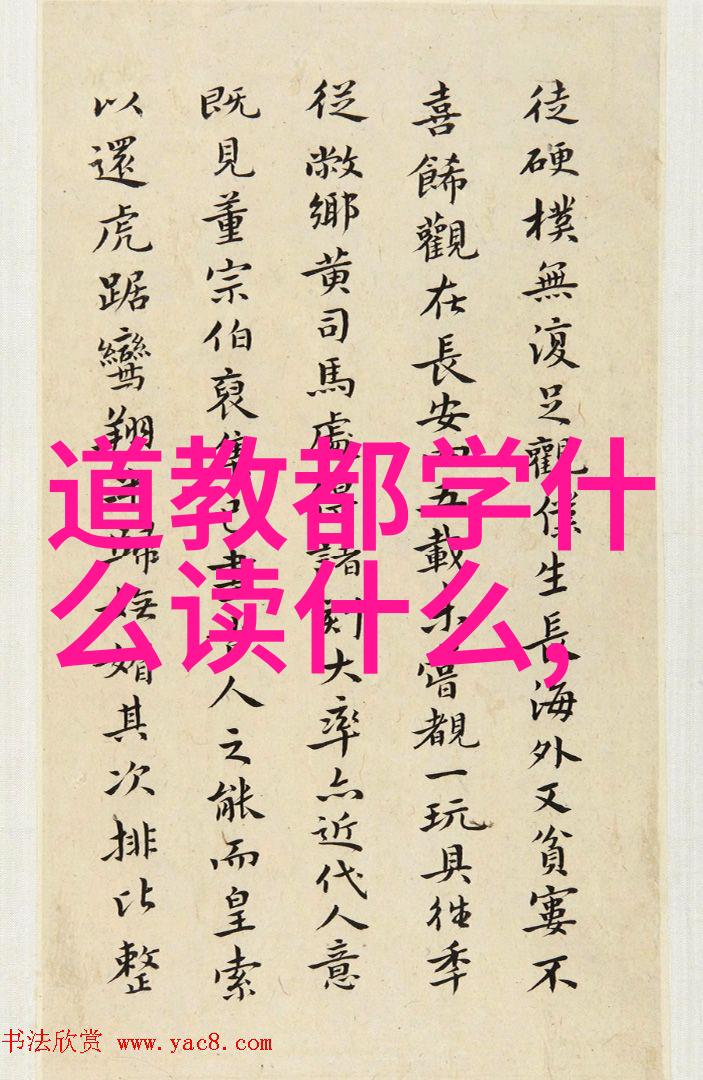 徒硬樸無復足觀僕生長海外又貧窶不
喜餙觀在長安四五載未嘗覩一玩具往季
從敝鄉黄司馬處得諸刻大率亦近代人意
既見董宗伯裒集己書人之能而皇索
以還虎踞鸞翔歸嫵媚其次排比整
道教都学什
么读什么,
书法欣赏 www.yac8.com